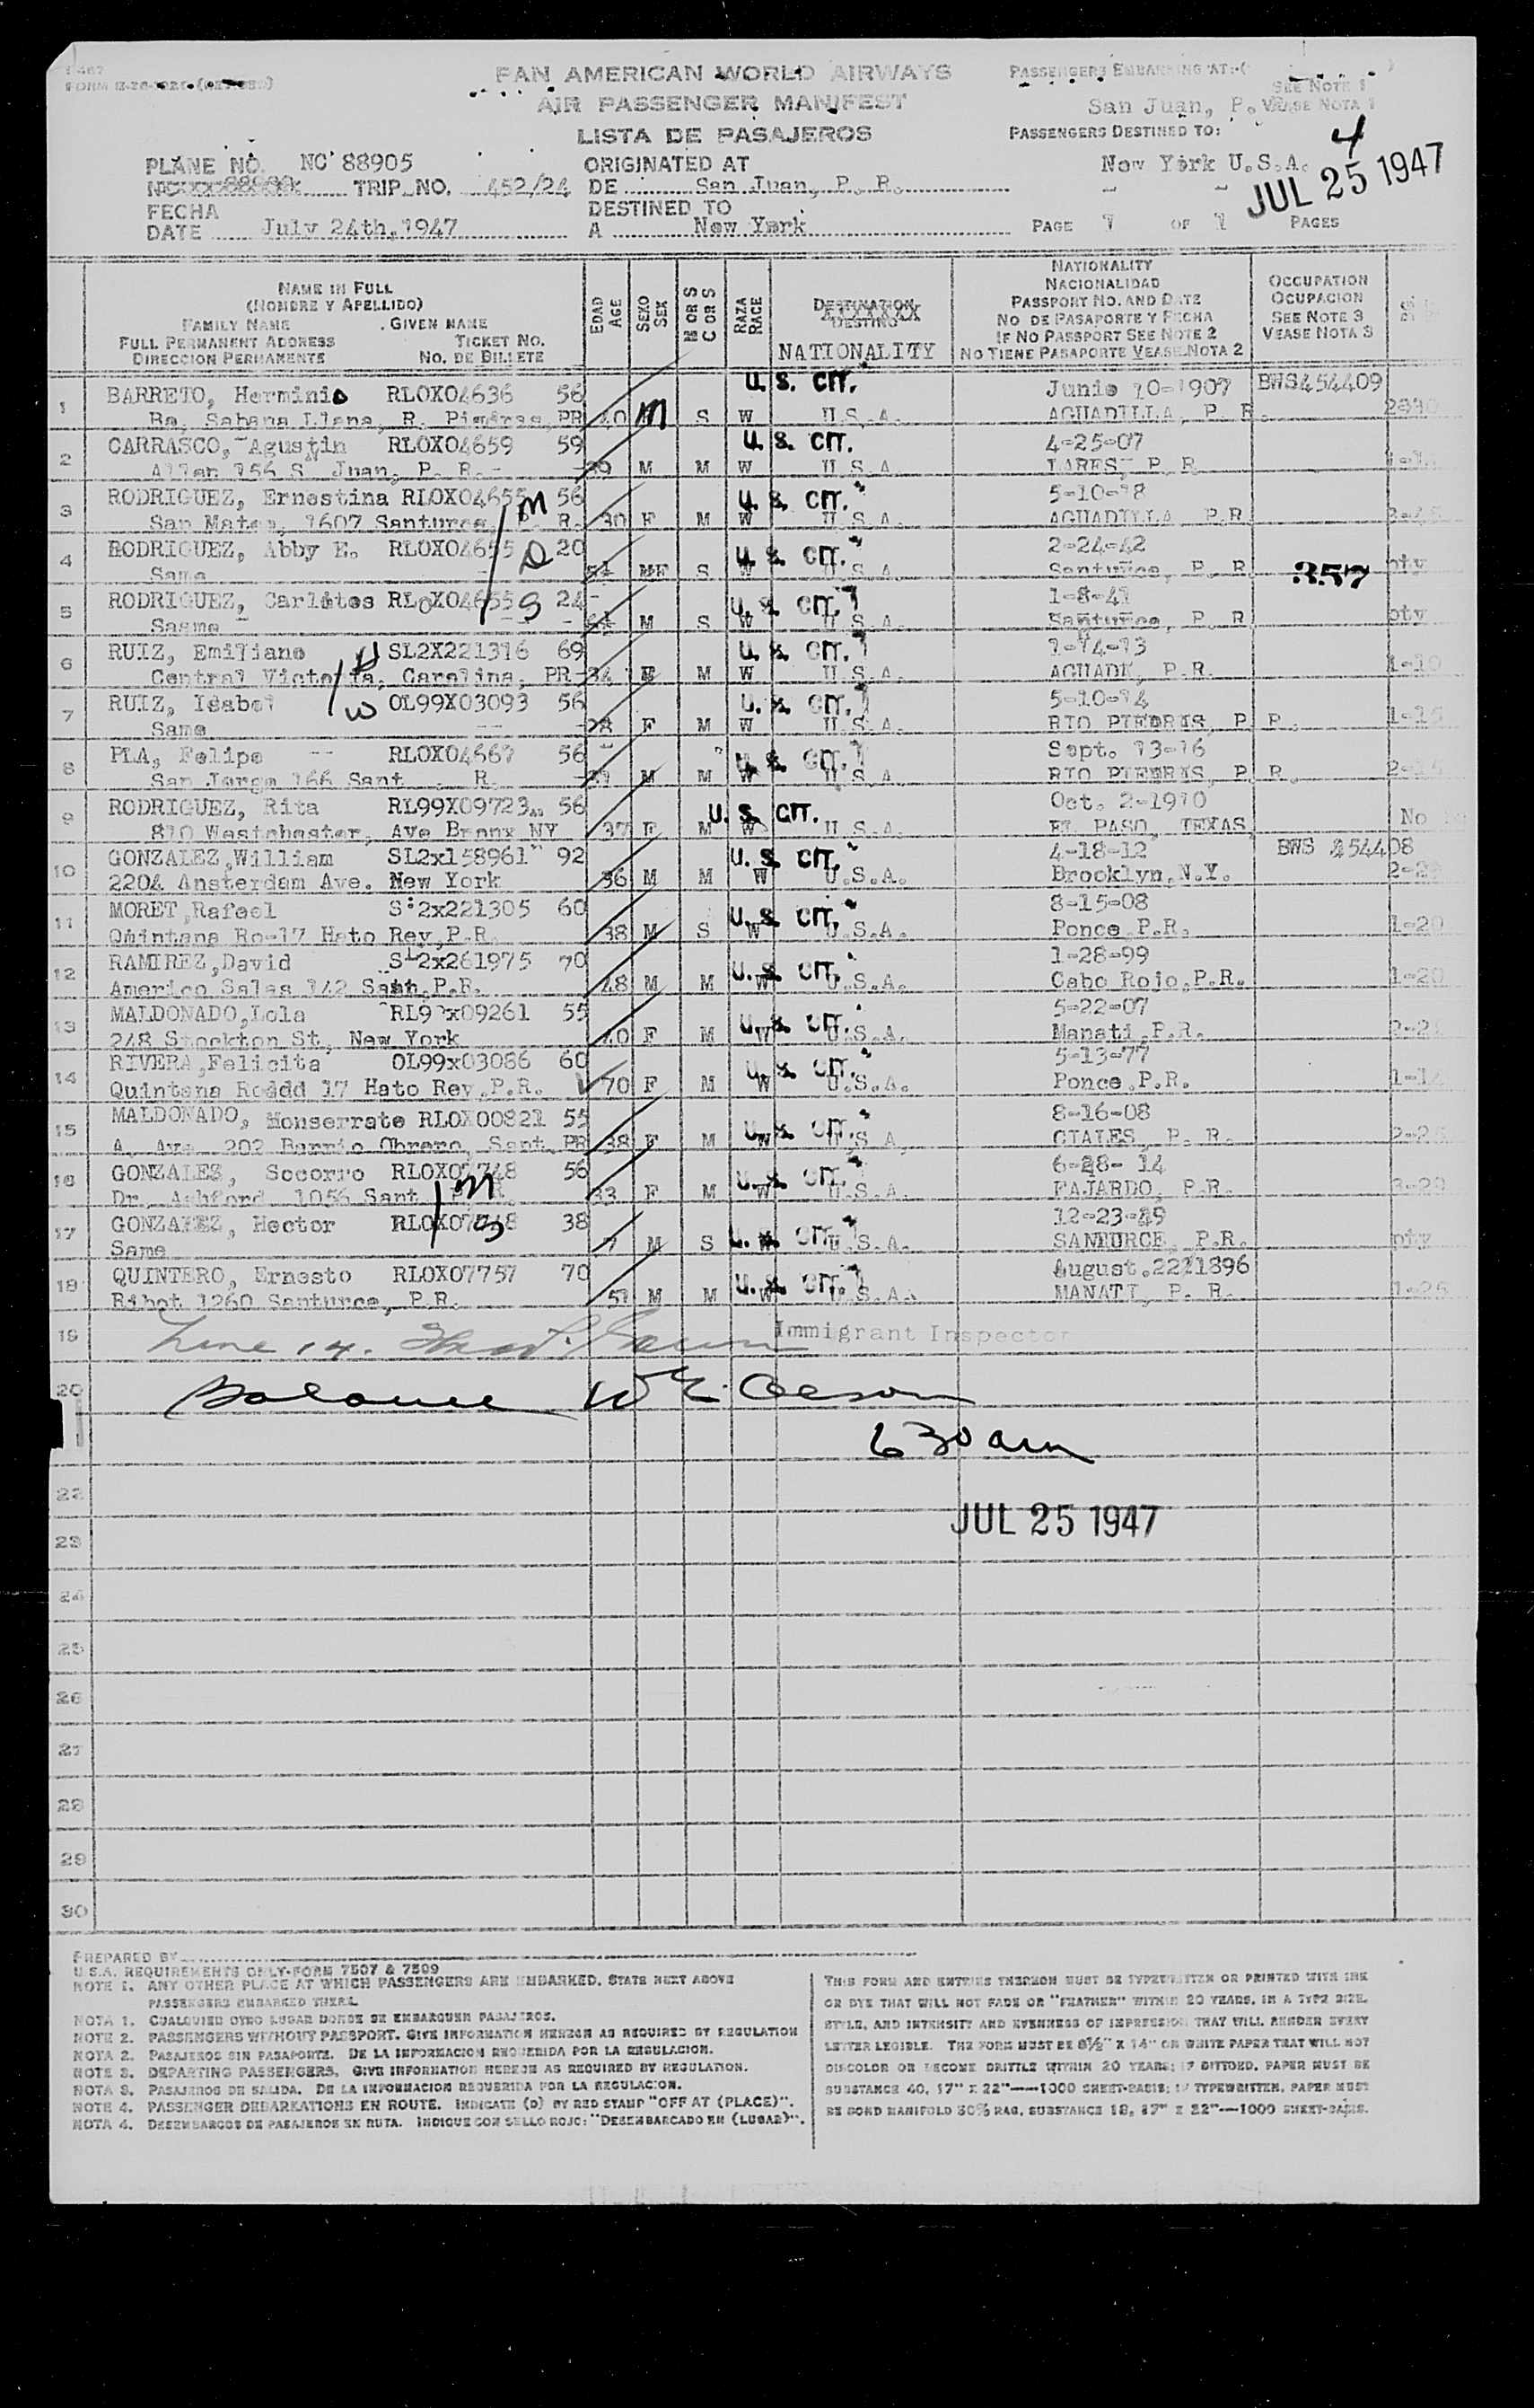 PAN AMERICAN WORLD AIRWAYS
AIR PASSENGER MANIFEST
LISTA DE PASAJEROS
PASSENGERS EMBARKING AT:-(
SEE NOTE 1
San Juan, P. VEASE NOTA 1
PASSENGERS DESTINED TO:
4
New York U.S.A.
JUL 25 1947
PLANE NO. NC 88905
TRIP NO. 452/24
ORIGINATED AT
DE San Juan, P. R.
FECHA
DATE July 24th, 1947
DESTINED TO
A New York
PAGE 1 OF 1 PAGES
NAME IN FULL
(NOMBRE Y APELLIDO)
FAMILY NAME GIVEN NAME
FULL PERMANENT ADDRESS TICKET NO.
DIRECCION PERMANENTE NO. DE BILLETE
EDAD AGE
SEXO SEX
M OR S C OR S
RAZA RACE
DESTINATION
DESTINO
NATIONALITY
NATIONALITY
NACIONALIDAD
PASSPORT NO. AND DATE
NO DE PASAPORTE Y FECHA
IF NO PASSPORT SEE NOTE 2
NO TIENE PASAPORTE VEASE NOTA 2
OCCUPATION
OCUPACION
SEE NOTE 3
VEASE NOTA 3
1 BARRETO, Herminio RLOX04636 56 U. S. CIT. Junio 10-1907 BWS454409
Bo. Sabana Llana, R. Piedras, PR 40 M S W U.S.A. AGUADILLA, P. R.
2 CARRASCO, Agustin RLOX04659 59 U. S. CIT. 4-25-07
Allen 156 S. Juan, P. R. 39 M M W U.S.A. LARES, P. R.
3 RODRIGUEZ, Ernestina RLOX04655 M 56 U. S. CIT. 5-10-18
San Mateo, 1607 Santurce, P. R. 30 F M W U.S.A. AGUADILLA P.R.
4 RODRIGUEZ, Abby E. RLOX04655 D 20 U. S. CIT. 2-24-42
Same 5½ MF S W U.S.A. Santurce, P. R. 357 pty
5 RODRIGUEZ, Carlitos RLOX04655 S 24 U. S. CIT. 1-8-41
Sasme 6½ M S W U.S.A. Santurce, P. R. pty
6 RUIZ, Emiliano H SL2X221316 69 U. S. CIT. 1-14-13
Central Victoria, Carolina, PR 34 M W U.S.A. AGUADA, P.R.
7 RUIZ, Isabel W OL99X03093 56 U. S. CIT. 5-10-14
Same 28 F M W U.S.A. RIO PIEDRAS, P. R.
8 PLA, Felipe RLOX04667 56 U. S. CIT. Sept. 13-16
San Jorge 166 Sant. P. R. 31 M M W U.S.A. RIO PIEDRAS, P. R.
9 RODRIGUEZ, Rita RL99X09723 56 U. S. CIT. Oct. 2-1910
810 Westchester, Ave Bronx NY 37 F M W U.S.A. EL PASO, TEXAS No
10 GONZALEZ,William SL2x158961 92 U. S. CIT. 4-18-12 BWS 454408
220A Amsterdam Ave. New York 36 M M W U.S.A. Brooklyn,N.Y.
11 MORET,Rafael S 2x221305 60 U. S. CIT. 8-15-08
Quintana Ro-17 Hato Rey,P.R. 38 M S W U.S.A. Ponce P.R. 1-20
12 RAMIREZ,David SL2x261975 70 U. S. CIT. 1-28-99
Americo Salas 142 Sant,P.R. 48 M M W U.S.A. Cabo Rojo,P.R. 1-20
13 MALDONADO,Lola RL99x09261 55 U. S. CIT. 5-22-07
248 Stockton St, New York 40 F M W U.S.A. Manati,P.R.
14 RIVERA,Felicita OL99x03086 60 U. S. CIT. 5-13-77
Quintana Roddd 17 Hato Rey,P.R. 70 F M W U.S.A. Ponce,P.R.
15 MALDONADO, Monserrate RLOX00821 55 U. S. CIT. 8-16-08
A. Ave. 202 Barrio Obrero, Sant.PR 38 F M W U.S.A. CIALES, P. R.
16 GONZALES, Socorro RLOX07748 56 U. S. CIT. 6-28- 14
Dr. Ashford 1056 Sant. M 33 F M W U.S.A. FAJARDO, P.R.
17 GONZALEZ, Hector RLOX07748 S 38 U. S. CIT. 12-23-39
Same 7 M S W U.S.A. SANTURCE, P.R. pty
18 QUINTERO, Ernesto RLOX07757 70 U. S. CIT. August.22 1896
Bibot 1260 Santurce, P.R. 51 M M W U.S.A. MANATI, P. R.
19 Line 14. Immigrant Inspector
20 Balance W E Oleson
630 am
22
JUL 25 1947
23
24
25
26
27
28
29
30
PREPARED BY
U.S.A. REQUIREMENTS ONLY-FORM 7507 & 7509
NOTE 1. ANY OTHER PLACE AT WHICH PASSENGERS ARE EMBARKED, STATE NEXT ABOVE
PASSENGERS EMBARKED THERE.
NOTA 1. CUALQUIER OTRO LUGAR DONDE SE EMBARQUEN PASAJEROS.
NOTE 2. PASSENGERS WITHOUT PASSPORT. GIVE INFORMATION HEREON AS REQUIRED BY REGULATION
NOTA 2. PASAJEROS SIN PASAPORTE. DE LA INFORMACION REQUERIDA POR LA REGULACION.
NOTE 3. DEPARTING PASSENGERS. GIVE INFORMATION HEREON AS REQUIRED BY REGULATION.
NOTA 3. PASAJEROS DE SALIDA. DE LA INFORMACION REQUERIDA POR LA REGULACION.
NOTE 4. PASSENGER DEBARKATIONS EN ROUTE. INDICATE (D) BY RED STAMP "OFF AT (PLACE)".
NOTA 4. DESEMBARCOS DE PASAJEROS EN RUTA. INDIQUE CON SELLO ROJO: "DESEMBARCADO EN (LUGAR)".
THIS FORM AND ENTRIES THEREON MUST BE TYPEWRITTEN OR PRINTED WITH INK
OR DYE THAT WILL NOT FADE OR "FEATHER" WITHIN 20 YEARS, IN A TYPE SIZE,
STYLE, AND INTENSITY AND EVENNESS OF IMPRESSION THAT WILL RENDER EVERY
LETTER LEGIBLE. THE FORM MUST BE 8½" X 14" ON WHITE PAPER THAT WILL NOT
DISCOLOR OR BECOME BRITTLE WITHIN 20 YEARS; IF DITTOED, PAPER MUST BE
SUBSTANCE 40, 17" X 22"—1000 SHEET-BASIS; IF TYPEWRITTEN, PAPER MUST
BE BOND MANIFOLD 50% RAG, SUBSTANCE 18, 17" X 22"—1000 SHEET-BASIS.